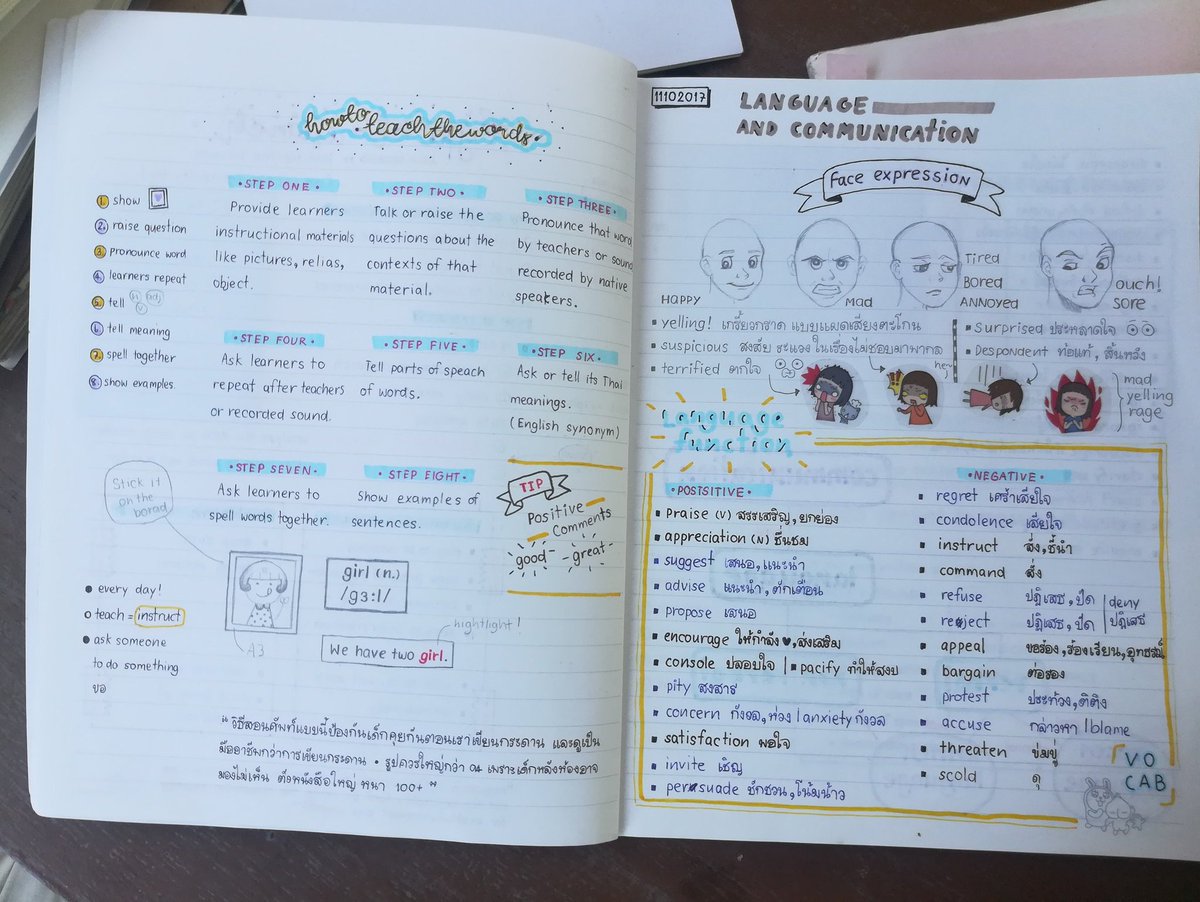 how to
teach the words.
1. show
2. raise question
3. pronounce word
4. learners repeat
5. tell n adj v
6. tell meaning
7. spell together
8. show examples
• STEP ONE •
Provide learners
instructional materials
like pictures, relias,
object.
• STEP TWO •
Talk or raise the
questions about the
contexts of that
material.
• STEP THREE •
Pronounce that word
by teachers or sound
recorded by native
speakers.
• STEP FOUR •
Ask learners to
repeat after teachers
or recorded sound.
• STEP FIVE •
Tell parts of speach
of words.
• STEP SIX •
Ask or tell its Thai
meanings.
(English synonym)
• STEP SEVEN •
Ask learners to
spell words together.
• STEP EIGHT •
Show examples of
sentences.
TIP
Positive
Comments
good
great
Stick it
on the
borad
A3
girl (n.)
/gɜ:l/
hightlight!
We have two girl.
• every day!
teach = instruct
• ask someone
to do something
ขอ
“ วิธีสอนศัพท์แบบนี้ป้องกันเด็กคุยกันตอนเราเขียนกระดาน และดูเป็น
มืออาชีพกว่าการเขียนกระดาน • รูปควรใหญ่กว่า A4 เพราะเด็กหลังห้องอาจ
มองไม่เห็น ตัวหนังสือใหญ่ หนา 100+ ”
11102017
LANGUAGE
AND COMMUNICATION
Face expression
HAPPY
Mad
Tired
Bored
ANNOYED
ouch!
sore
▪ yelling! เกรี้ยวกราด แบบแผดเสียงตะโกน
▪ suspicious สงสัย ระแวง ในเรื่องไม่ชอบมาพากล
▪ terrified ตกใจ
▪ surprised ประหลาดใจ
▪ Despondent ท้อแท้, สิ้นหวัง
mad
yelling
rage
Language
function
• POSTSITIVE •
▪ praise (v) สรรเสริญ, ยกย่อง
▪ appreciation (N) ชื่นชม
▪ suggest เสนอ, แนะนำ
▪ advise แนะนำ, ตักเตือน
▪ propose เสนอ
▪ encourage ให้กำลัง♥, ส่งเสริม
▪ console ปลอบใจ | ▪ pacify ทำให้สงบ
▪ pity สงสาร
▪ concern กังวล, ห่วง | anxiety กังวล
▪ satisfaction พอใจ
▪ invite เชิญ
▪ persuade ชักชวน, โน้มน้าว
• NEGATIVE •
▪ regret เศร้าเสียใจ
▪ condolence เสียใจ
▪ instruct สั่ง, ชี้นำ
▪ command สั่ง
▪ refuse ปฏิเสธ, ปัด | deny
▪ reject ปฏิเสธ, ปัด | ปฏิเสธ
▪ appeal ขอร้อง, ร้องเรียน, อุทธรณ์
▪ bargain ต่อรอง
▪ protest ประท้วง, ติติง
▪ accuse กล่าวหา | blame
▪ threaten ข่มขู่
▪ scold ดุ
VO
CAB